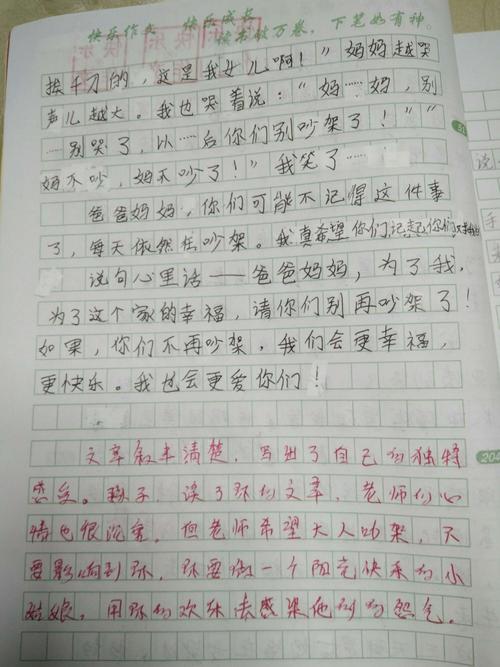 快乐作文 快乐成长
读书破万卷，下笔如有神。
挨千刀的，这是我女儿啊！”妈妈越哭
声儿越大。我也哭着说：“妈……妈，别
……别哭了，以……后你们别吵架了！”“
妈不吵，妈不吵了！”我笑了……
爸爸妈妈，你们可能不记得这件事
了，每天依然在吵架。我真希望你们记起你们
说句心里话——爸爸妈妈，为了我，
为了这个家的幸福，请你们别再吵架了！
如果，你们不再吵架，我们会更幸福，
更快乐。我也会更爱你们！
文章叙事清楚，写出了自己的独特
感受。孩子，读了你的文章，老师的心
情也很沉重。但老师希望大人吵架，不
要影响到你，你要做一个阳光快乐的小
姑娘，用你的欢乐去感染他们的怨气。
204